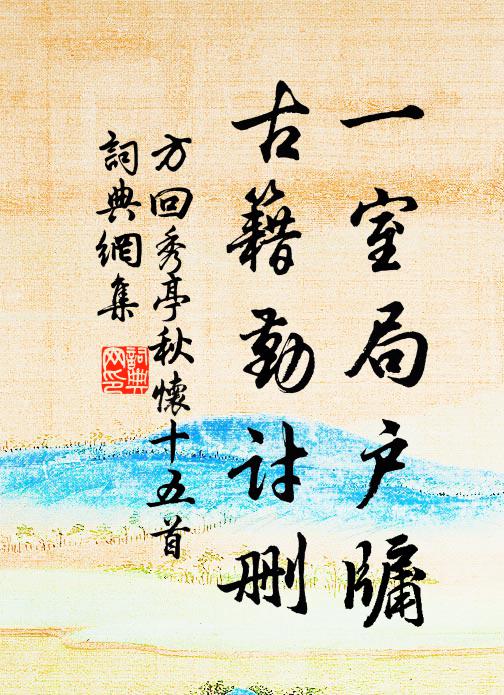 一室局户牖
古籍勤討删
方回秀亭秋懷十五首
詞典網集
詞典网印